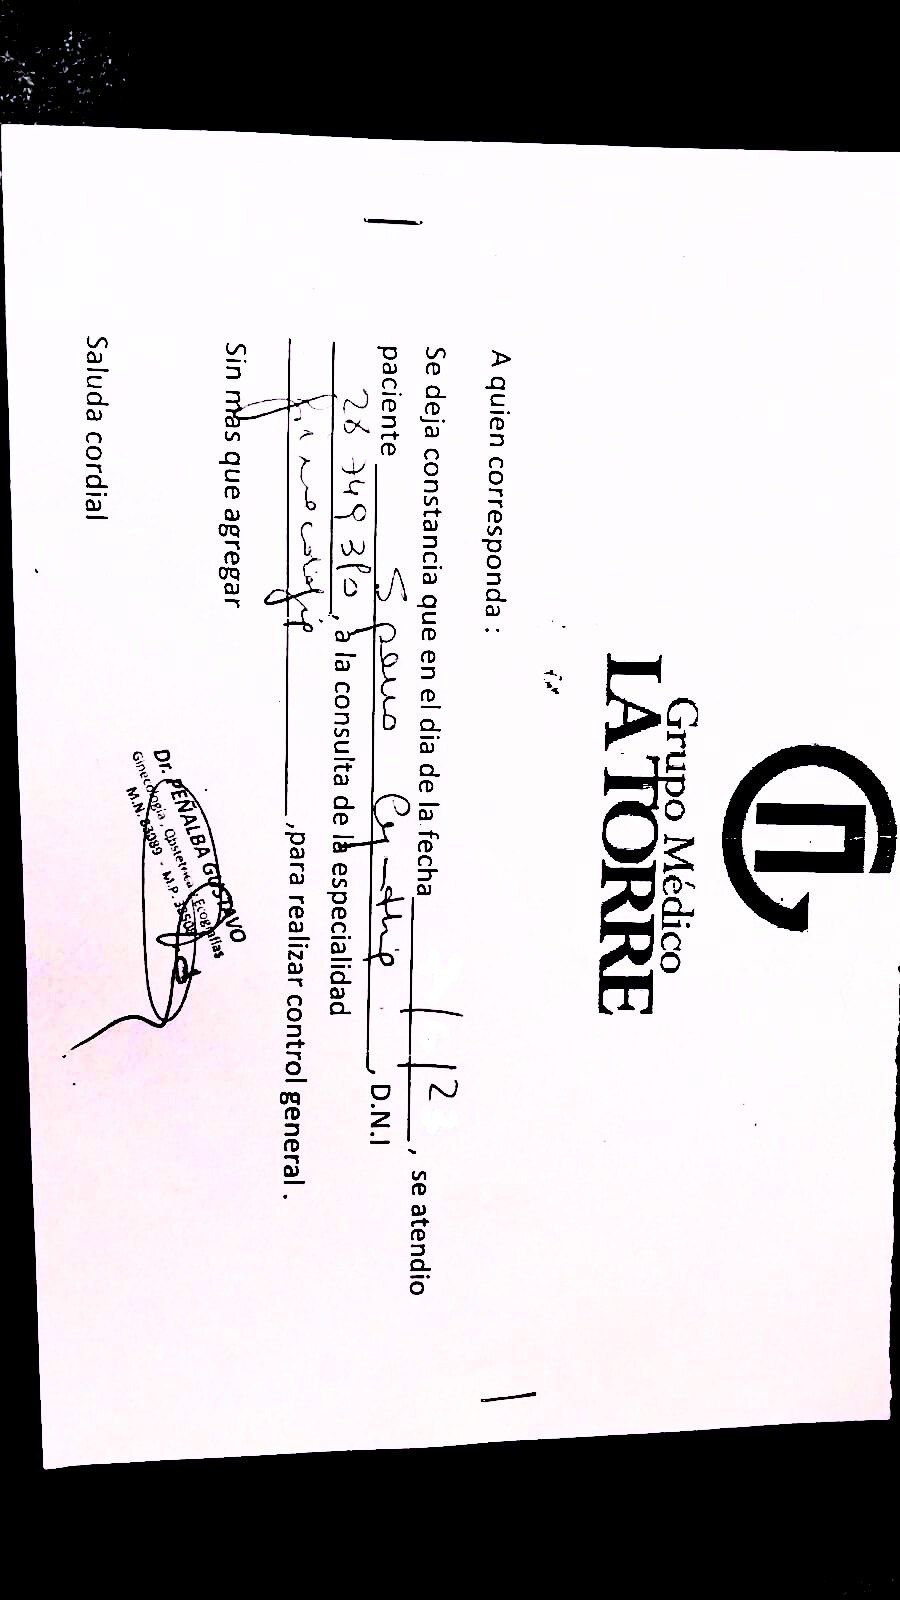 Grupo Médico
LA TORRE
A quien corresponda :
Se deja constancia que en el dia de la fecha / /2 , se atendio
paciente Cynthia , D.N.I
28 749 380 , a la consulta de la especialidad
Ginecología ,para realizar control general .
Sin mas que agregar
Saluda cordial
Dr. PEÑALBA GUSTAVO
Ginecología , Obstetricia y Ecografías
M.N. 83089 - M.P.